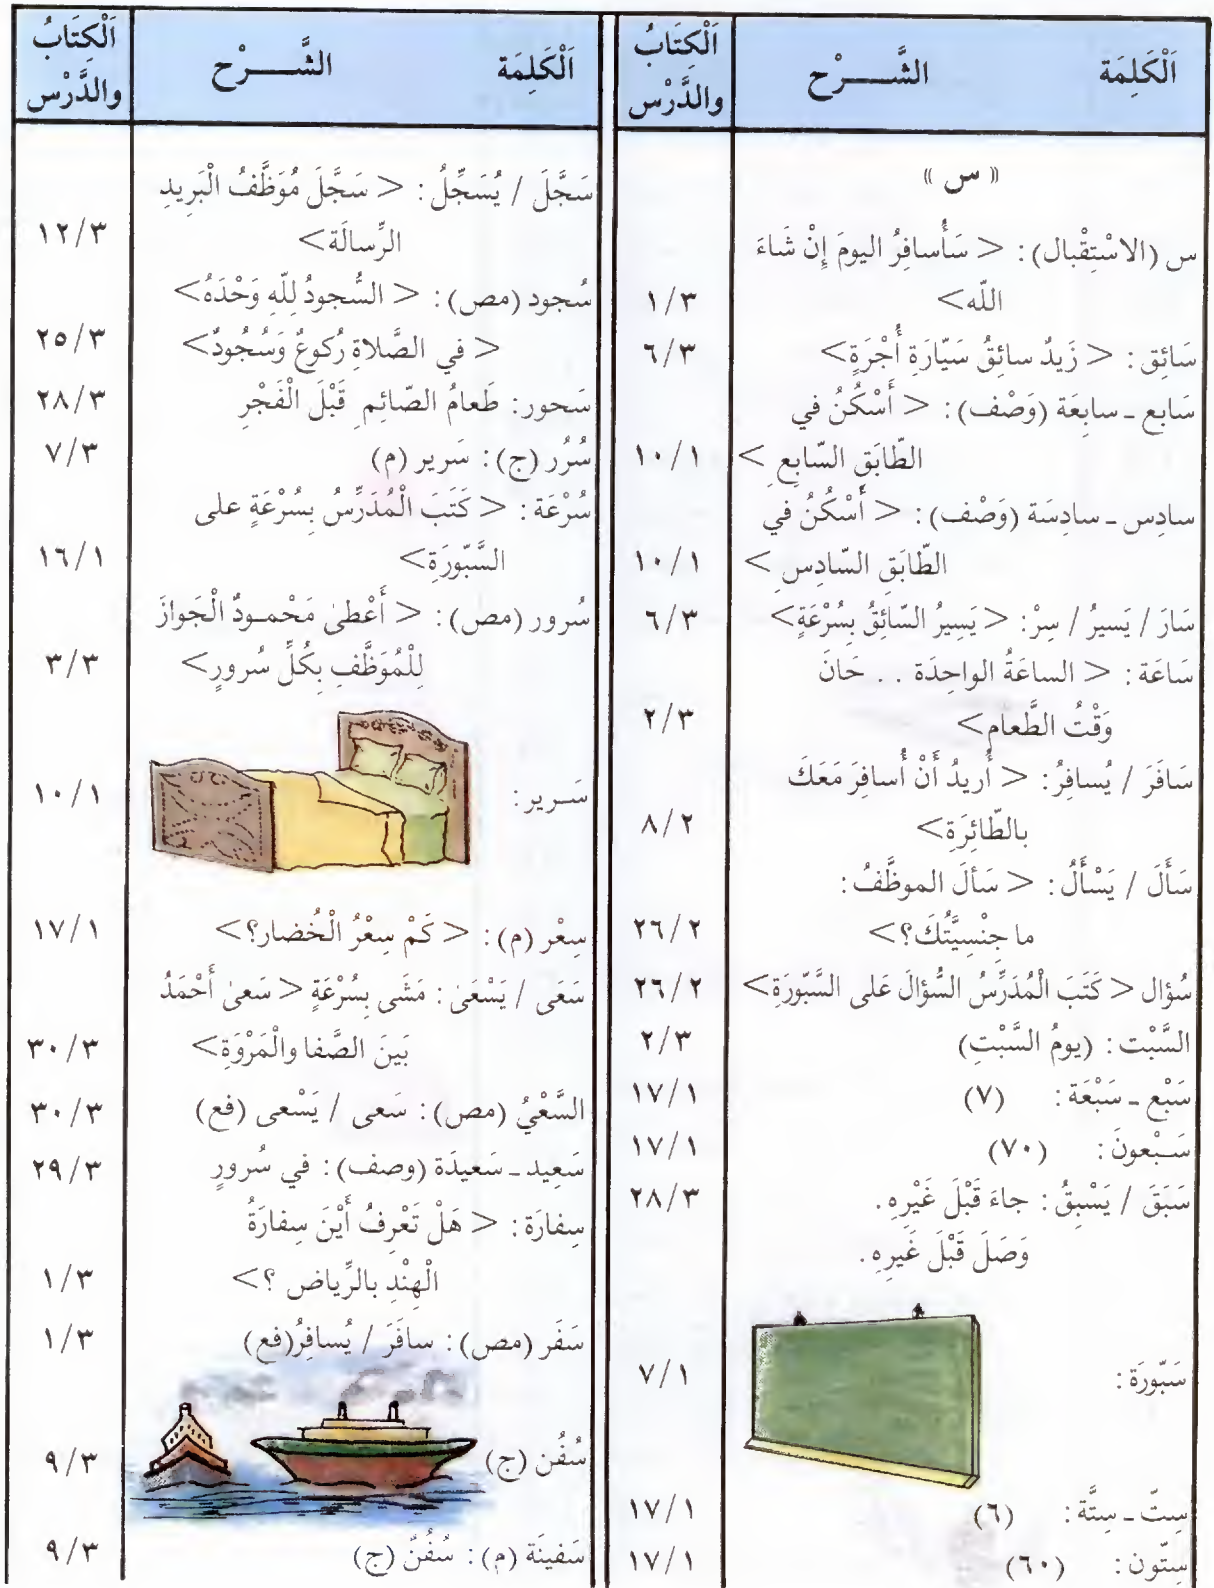 اَلْكَلِمَة الشَّـــرْح اَلْكِتَابُ والدَّرْس
« س »
س (الاسْتِقْبال) : < سَأُسافِرُ اليومَ إِنْ شَاءَ
اللّه> ١/٣
سَائِق : < زَيدٌ سائِقُ سَيّارَةِ أُجْرَةٍ> ٦/٣
سَابع ـ سابِعَة (وَصْف) : < أَسْكُنُ في
الطّابَقِ السّابِعِ > ١٠/١
سادِس ـ سادِسَة (وَصْف) : < أَسْكُنُ في
الطّابَقِ السّادِسِ > ١٠/١
سَارَ / يَسيرُ / سِرْ : < يَسِيرُ السّائِقُ بِسُرْعَةٍ> ٦/٣
سَاعَة : < الساعَةُ الواحِدَة . . حَانَ
وَقْتُ الطَّعامِ> ٢/٣
سَافَرَ / يُسافِرُ : < أُريدُ أَنْ أُسافِرَ مَعَكَ
بالطّائِرَةِ> ٨/٢
سَأَلَ / يَسْأَلُ : < سَألَ الموظَّفُ :
ما جِنْسِيَّتُكَ؟> ٢٦/٢
سُؤال < كَتَبَ الْمُدَرِّسُ السُّؤالَ عَلى السَّبّورَةِ> ٢٦/٢
السَّبْت : (يومُ السَّبْتِ) ٢/٣
سَبْع ـ سَبْعَة : (٧) ١٧/١
سَـبْعونَ : (٧٠) ١٧/١
سَبَقَ / يَسْبِقُ : جاءَ قَبْلَ غَيْرِهِ . ٢٨/٣
وَصَلَ قَبْلَ غَيرِهِ .
سَبّورَة : ٧/١
سِتّ ـ سِتَّة : (٦) ١٧/١
سِتّون : (٦٠) ١٧/١
اَلْكَلِمَة الشَّـــرْح اَلْكِتَابُ والدَّرْس
سَجَّلَ / يُسَجِّلُ : < سَجَّلَ مُوَظَّفُ الْبَرِيدِ
الرِّسالَة> ١٢/٣
سُجود (مص) : < السُّجودُ لِلّهِ وَحْدَهُ>
< في الصَّلاةِ رُكوعٌ وَسُجُودٌ> ٢٥/٣
سَحور : طَعامُ الصّائِمِ قَبْلَ الْفَجْرِ ٢٨/٣
سُرُر (ج) : سَرير (م) ٧/٣
سُرْعَة : < كَتَبَ الْمُدَرِّسُ بِسُرْعَةٍ على
السَّبّورَةِ> ١٦/١
سُرور (مص) : < أَعْطىٰ مَحْمـودٌ الْجَوازَ
لِلْمُوَظَّفِ بِكُلِّ سُرورٍ> ٣/٣
سَـرير : ١٠/١
سِعْر (م) : < كَمْ سِعْرُ الْخُضار؟> ١٧/١
سَعَى / يَسْعَىٰ : مَشَى بِسُرْعَةٍ < سَعىٰ أَحْمَدُ
بَينَ الصَّفا والْمَرْوَةِ> ٣٠/٣
السَّعْيُ (مص) : سَعى / يَسْعى (فع) ٣٠/٣
سَعِيد ـ سَعيدَة (وصف) : في سُرورٍ ٢٩/٣
سِفارَة : < هَلْ تَعْرِفُ أَيْنَ سِفارَةُ
الْهِنْدِ بالرِّياض ؟> ١/٣
سَفَر (مص) : سافَرَ / يُسافِرُ(فع) ١/٣
سُفُن (ج) ٩/٣
سَفينَة (م) : سُفُنٌ (ج) ٩/٣